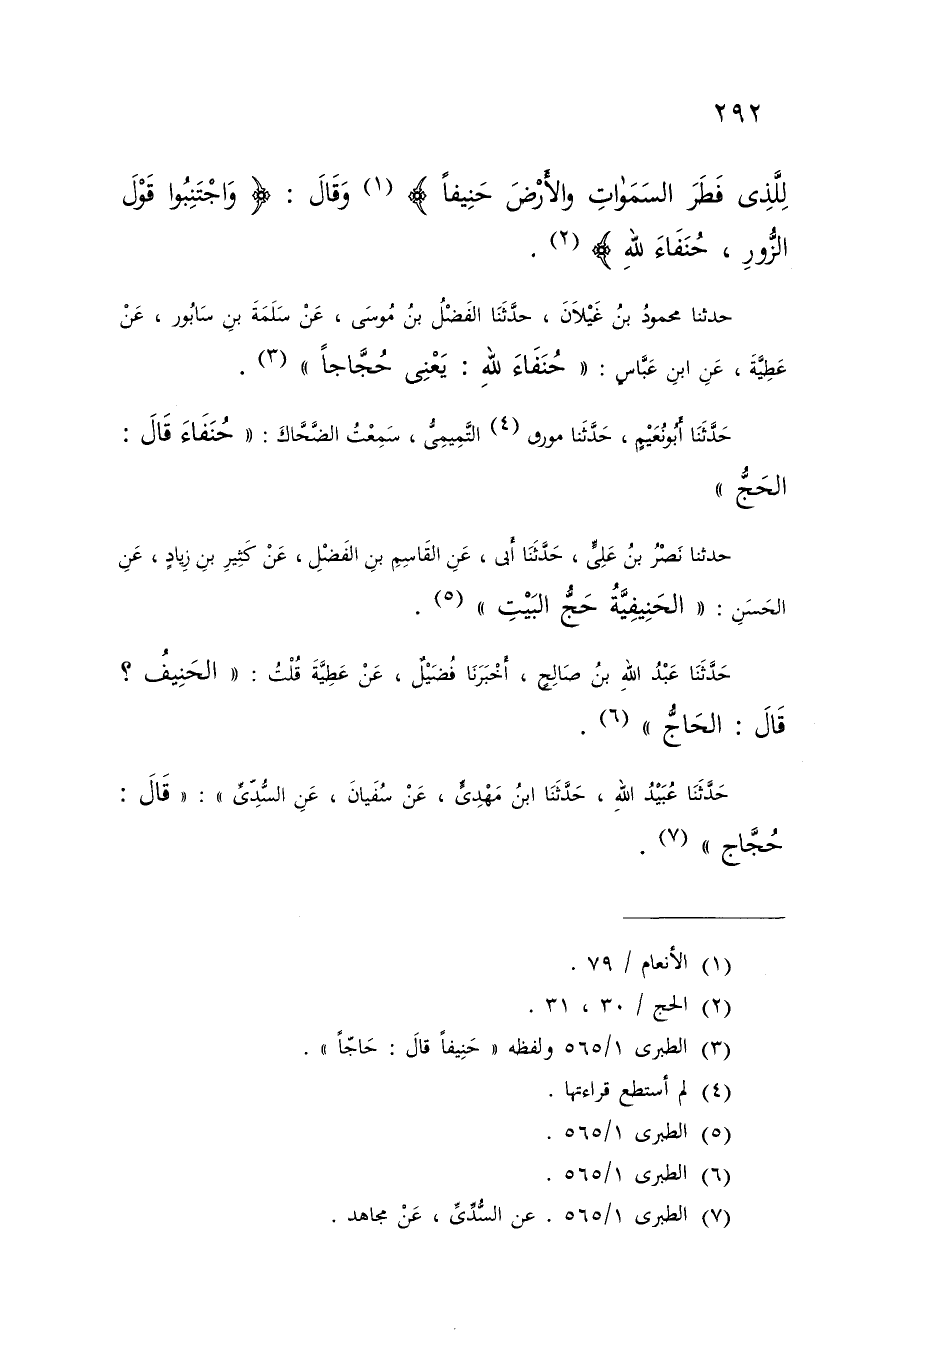 ٢٩٢
لِلَّذِى فَطَرَ السَمَوٰاتِ والأَرْضَ حَنِيفاً ﴾ (١) وَقَالَ : ﴿ وَاجْتَنِبُوا قَوْلَ
الزُّورِ ، حُنَفَاءَ للهِ ﴾ (٢) .
حدثنا محمودُ بنُ غَيْلاَنَ ، حدَّثَنَا الفَضْلُ بنُ مُوسَى ، عَنْ سَلَمَةَ بنِ سَابُور ، عَنْ
عَطِيَّةَ ، عَنِ ابنِ عَبَّاسٍ : « حُنَفَاءَ للهِ : يَعْنِى حُجَّاجاً » (٣) .
حَدَّثَنَا أَبُونُعَيْمٍ ، حَدَّثَنا مورق (٤) التَّمِيمِىُّ ، سَمِعْتُ الضَّحَّاكَ : « حُنَفَاءَ قَالَ :
الحَجُّ »
حدثنا نَصْرُ بنُ عَلِىٍّ ، حَدَّثَنَا أَبى ، عَنِ القَاسِمِ بنِ الفَضْلِ ، عَنْ كَثِيرِ بنِ زِيادٍ ، عَنِ
الحَسَنِ : « الحَنِيفِيَّةُ حَجُّ البَيْتِ » (٥) .
حَدَّثَنَا عَبْدُ اللهِ بنُ صَالِحٍ ، أَخْبَرَنَا فُضَيْلٌ ، عَنْ عَطِيَّةَ قُلْتُ : « الحَنِيفُ ؟
قَالَ : الحَاجُّ » (٦) .
حَدَّثَنَا عُبَيْدُ اللهِ ، حَدَّثَنَا ابنُ مَهْدِىٍّ ، عَنْ سُفَيانَ ، عَنِ السُّدِّىِّ » : « قَالَ :
حُجَّاج » (٧) .
(١) الأنعام / ٧٩ .
(٢) الحج / ٣٠ ، ٣١ .
(٣) الطبرى ٥٦٥/١ ولفظه « حَنِيفاً قالَ : حَاجّاً » .
(٤) لم أستطع قراءتها .
(٥) الطبرى ٥٦٥/١ .
(٦) الطبرى ٥٦٥/١ .
(٧) الطبرى ٥٦٥/١ . عن السُّدِّىِّ ، عَنْ مجاهد .